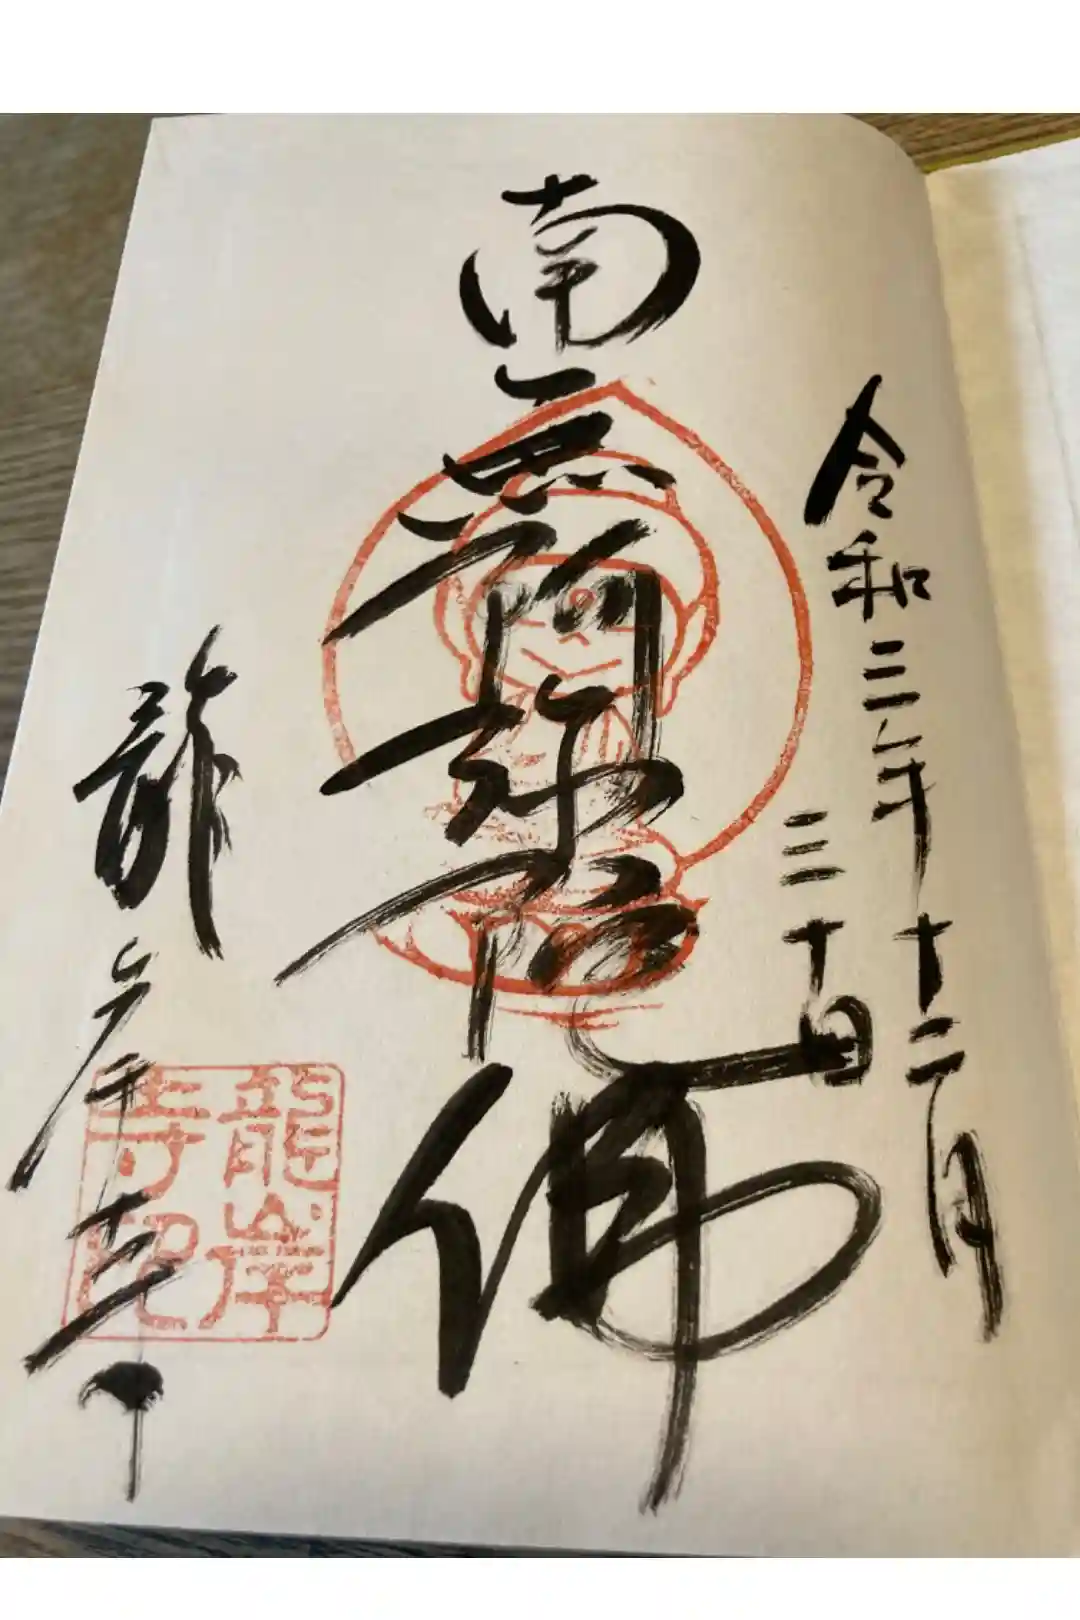 令和三年十二月
三十日
南無阿弥陀佛
龍岸寺
龍岸寺印